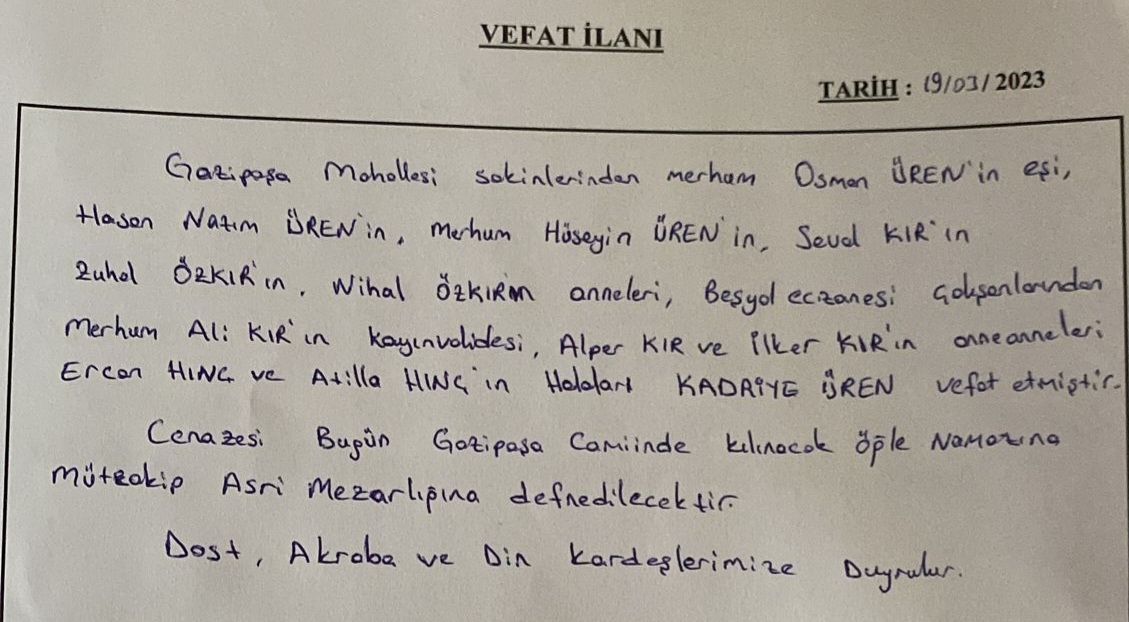 VEFAT İLANI
TARİH : 19/03/2023
Gazipaşa Mahallesi sakinlerinden merhum Osman ÜREN'in eşi,
Hasan Nazım ÜREN'in, Merhum Hüseyin ÜREN'in, Seval KIR'ın
Zuhal ÖZKIR'ın, Nihal ÖZKIRIM anneleri, Beşyol eczanesi çalışanlarından
Merhum Ali KIR'ın kayınvalidesi, Alper KIR ve İlker KIR'ın anneanneleri
Ercan HINÇ ve Atilla HINÇ'ın Halaları KADRİYE ÜREN vefat etmiştir.
Cenazesi Bugün Gazipaşa Camiinde kılınacak öğle Namazına
Müteakip Asri Mezarlığına defnedilecektir.
Dost, Akraba ve Din Kardeşlerimize Duyrulur.